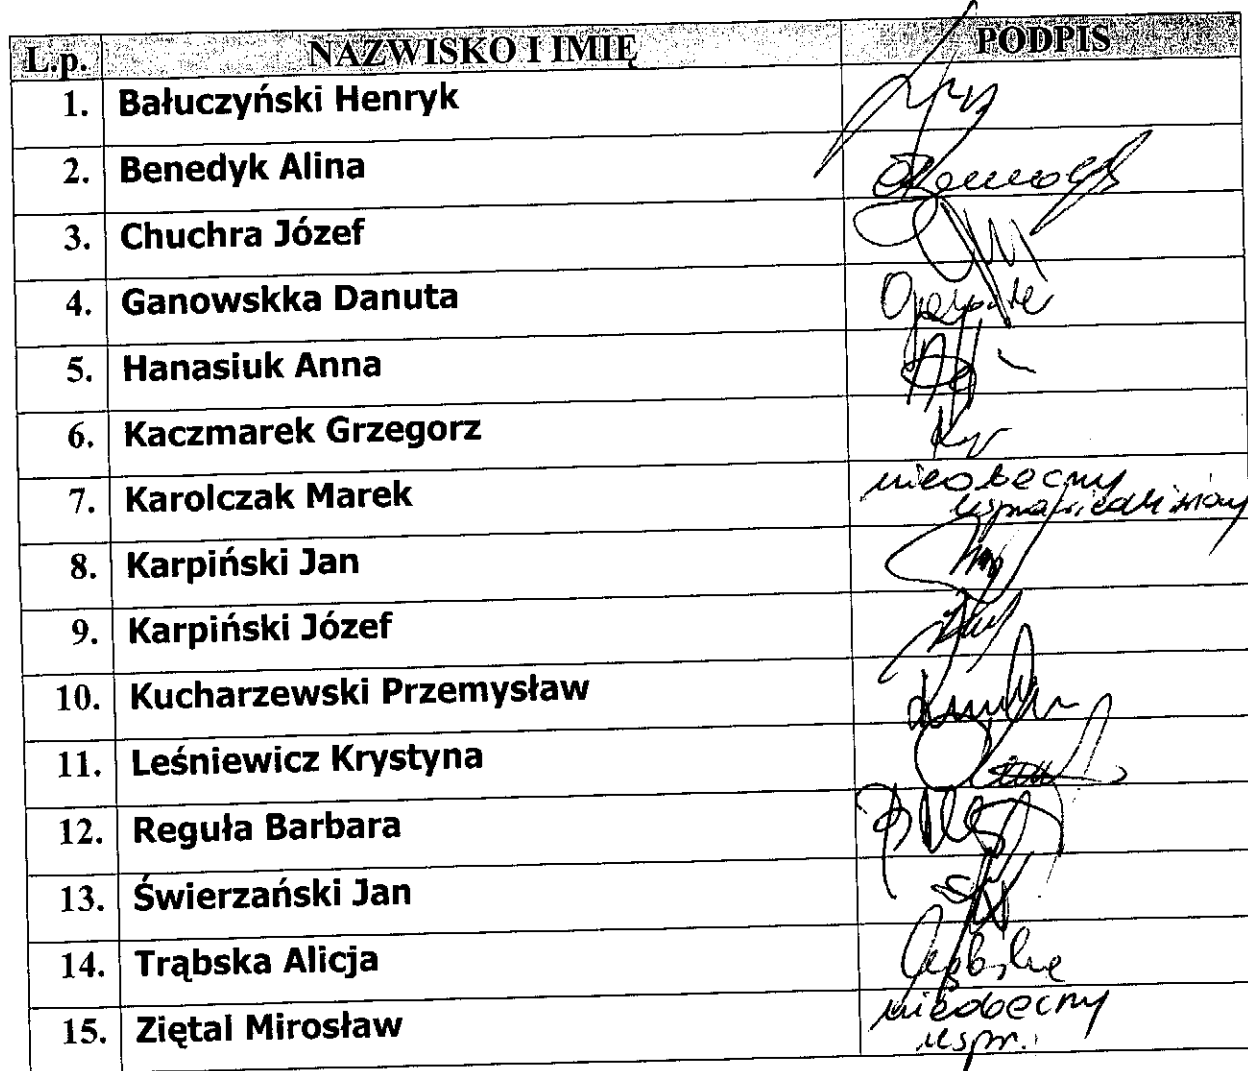 L.p. NAZWISKO I IMIĘ PODPIS
1. Bałuczyński Henryk
2. Benedyk Alina
3. Chuchra Józef
4. Ganowskka Danuta
5. Hanasiuk Anna
6. Kaczmarek Grzegorz
7. Karolczak Marek nieobecny
usprawiedliwiony
8. Karpiński Jan
9. Karpiński Józef
10. Kucharzewski Przemysław
11. Leśniewicz Krystyna
12. Reguła Barbara
13. Świerzański Jan
14. Trąbska Alicja
15. Ziętal Mirosław nieobecny
uspr.